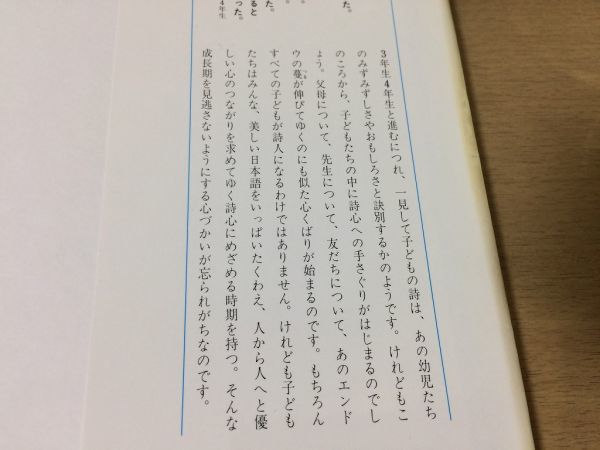 た。
。
。
た。
ると
った。
4年生
3年生4年生と進むにつれ、一見して子どもの詩は、あの幼児たち
のみずみずしさやおもしろさと訣別するかのようです。けれどもこ
のころから、子どもたちの中に詩心への手さぐりがはじまるのでし
ょう。父母について、先生について、友だちについて、あのエンド
ウの蔓が伸びてゆくのにも似た心くばりが始まるのです。もちろん
すべての子どもが詩人になるわけではありません。けれども子ども
たちはみんな、美しい日本語をいっぱいたくわえ、人から人へと優
しい心のつながりを求めてゆく詩心にめざめる時期を持つ。そんな
成長期を見逃さないようにする心づかいが忘られがちなのです。